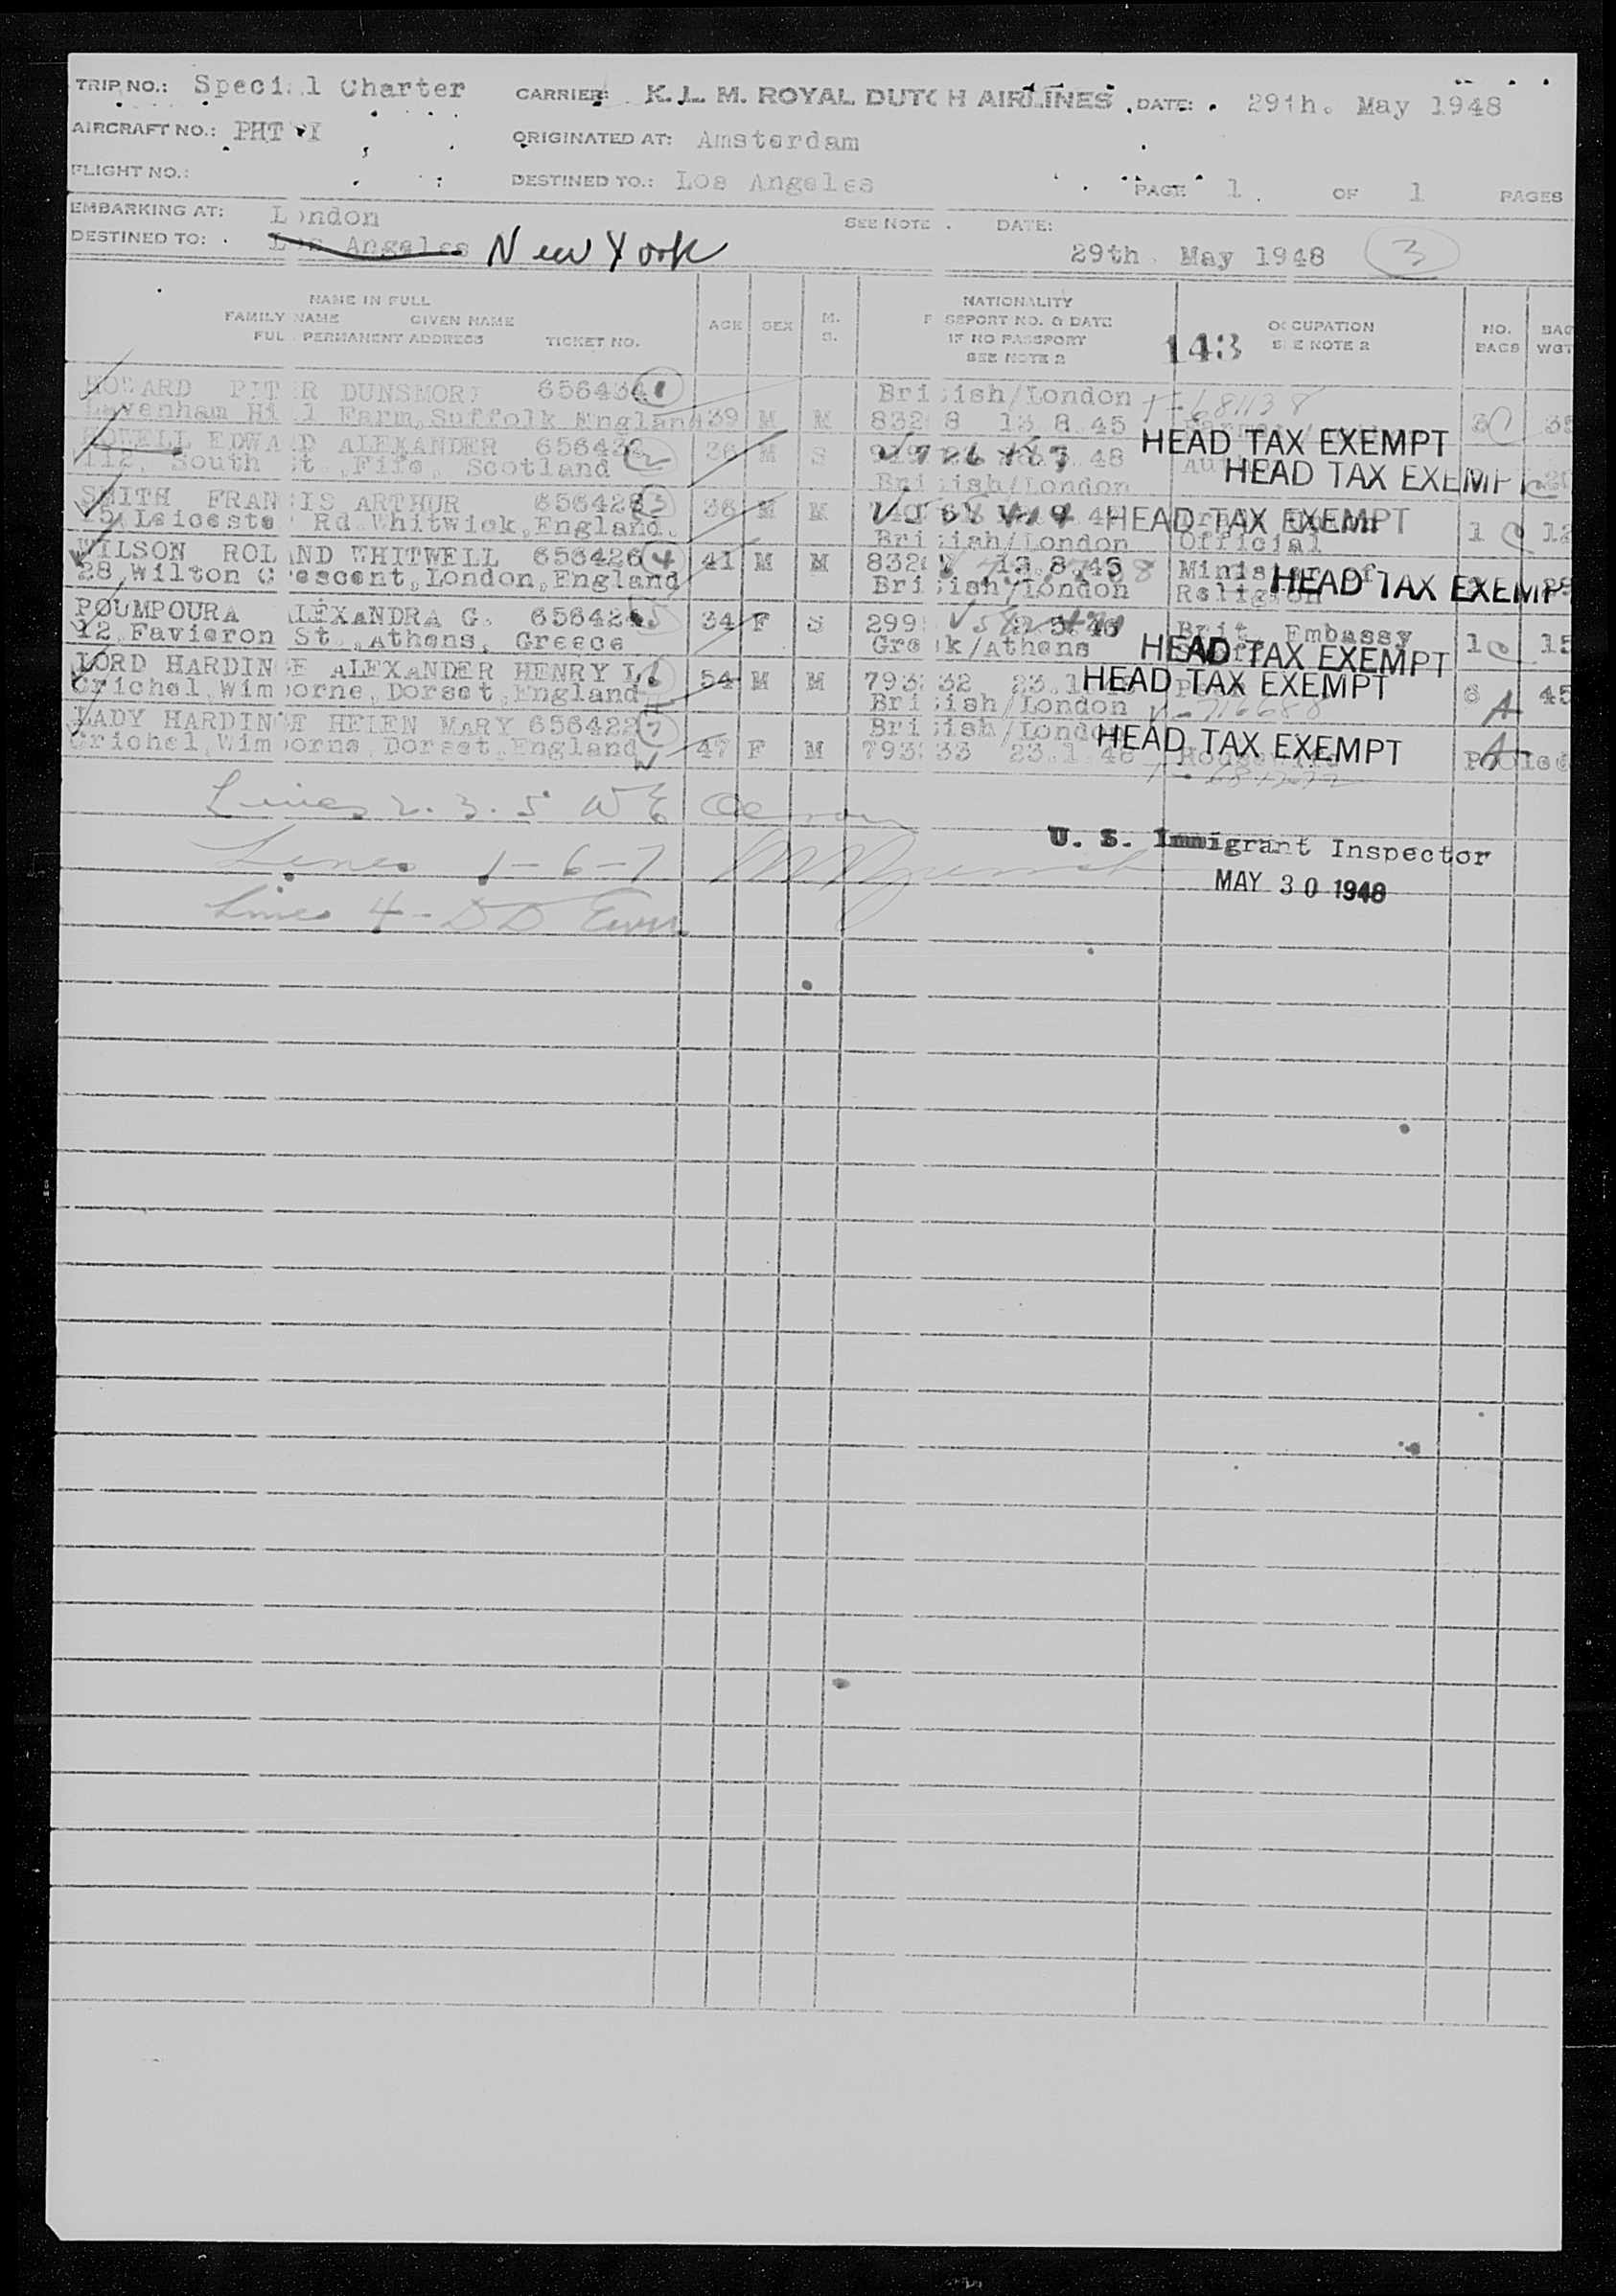 TRIP NO.: Special Charter CARRIER: K. L. M. ROYAL DUTCH AIRLINES DATE: 29th. May 1948
AIRCRAFT NO.: PHT I ORIGINATED AT: Amsterdam
FLIGHT NO.: DESTINED TO.: Los Angeles PAGE 1 OF 1 PAGES
EMBARKING AT: London SEE NOTE DATE:
DESTINED TO: Los Angeles New York 29th. May 1948 3
NAME IN FULL
FAMILY NAME GIVEN NAME
FUL PERMANENT ADDRESS TICKET NO.
AGE SEX M. S.
NATIONALITY
P SSPORT NO. & DATE
IF NO PASSPORT
SEE NOTE 2
143
OCCUPATION
SEE NOTE 2
NO. BAGS
BAG WGT
HOWARD PIT R DUNSMORE 656434 1 British/London
Lavenham Hi l Farm, Suffolk England 39 M M 832 8 13.8.45 30 35
HEAD TAX EXEMPT
EDWA D ALEXANDER 2 36 M S 48
112, South St, Fife, Scotland British/London
HEAD TAX EXEMP
SMITH FRANCIS ARTHUR 656428 3 36 M M HEAD TAX EXEMPT 1 12
Leiceste Rd. Whitwick, England. British/London Official
WILSON ROLAND WHITWELL 656426 4 41 M M 832 13.8.45 Minister of
28 Wilton Crescent, London, England British/London Religion
HEAD TAX EXEMP
POUMPOURA ALEXANDRA G. 65642 5 34 F S 299 Brit. Embassy 1 15
12 Favieron St., Athens, Greece Gre k/Athens
HEAD TAX EXEMPT
LORD HARDINGE ALEXANDER HENRY L. 6 54 M M 793 32 23.1 6 A 45
Crichel, Wimborne, Dorset, England British/London
HEAD TAX EXEMPT
V-716688
LADY HARDINGE HELEN MARY 656422 7 British/London
Crichel, Wimborne, Dorset, England 47 F M 793 33 23.1.46 Housewife A
HEAD TAX EXEMPT
Lines 2. 3. 5
Lines 1-6-7
U. S. Immigrant Inspector
MAY 30 1948
Lines 4 - DD